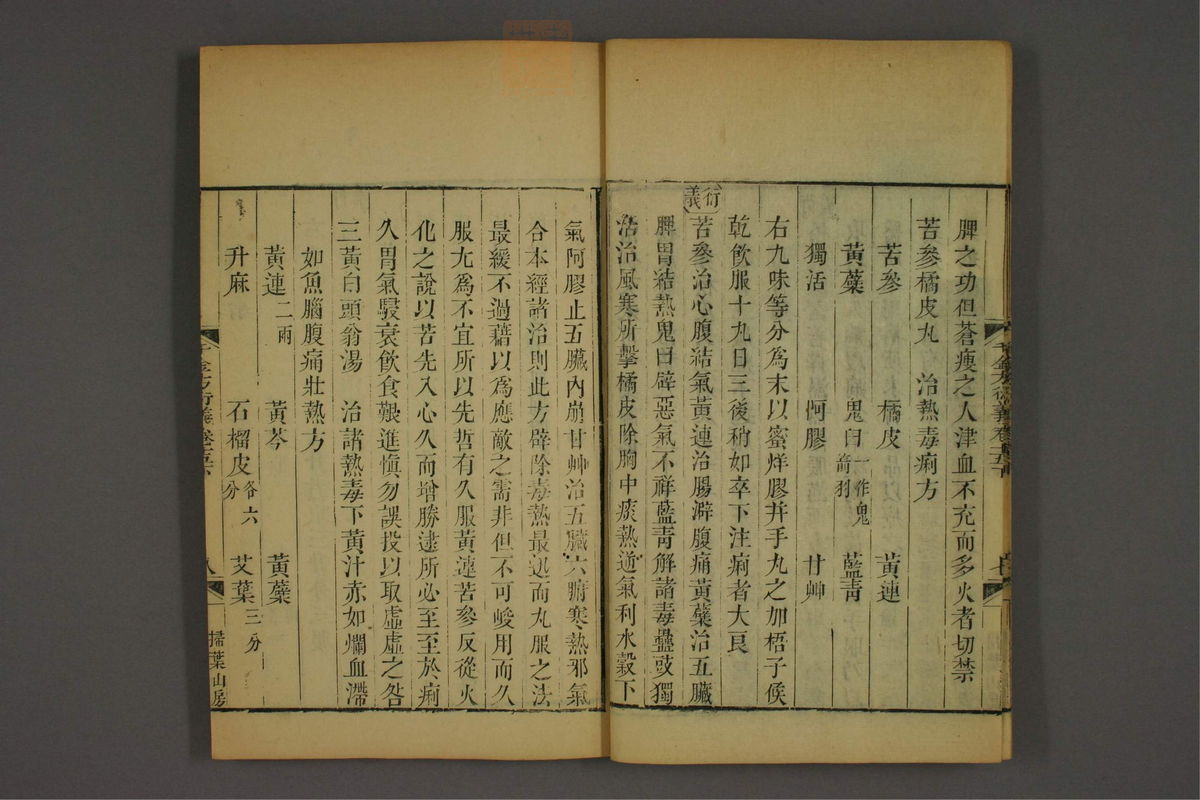 脾之功但蒼瘦之人津血不充而多火者切禁
苦參橘皮丸　治熱毒痢方
苦參　橘皮　黃連
黃蘗　鬼臼一作鬼箭羽　藍青
獨活　阿膠　甘艸
右九味等分為末以蜜烊膠并手丸之加梧子候
乾飲服十丸日三後稍加卒下注痢者大良
衍義
苦參治心腹結氣黃連治腸澼腹痛黃蘗治五臟
脾胃結熱鬼臼辟惡氣不祥藍青解諸毒蠱豉獨
活治風寒所擊橘皮除胸中痰熱逆氣利水穀下
氣阿膠止五臟內崩甘艸治五臟六腑寒熱邪氣
合本經諸治則此方辟除毒熱最迅而丸服之法
最緩不過藉以為應敵之需非但不可峻用而久
服尢為不宜所以先哲有久服黃連苦參反從火
化之說以苦先入心久而增勝逮所必至至於痢
久胃氣駸衰飲食艱進慎勿誤投以取虛虛之咎
三黃白頭翁湯　治諸熱毒下黃汁赤如爛血滯
如魚腦腹痛壯熱方
黃連二兩　黃芩　黃蘗
升麻　石榴皮各六分　艾葉三分
千金方衍義卷十五下
八
掃葉山房